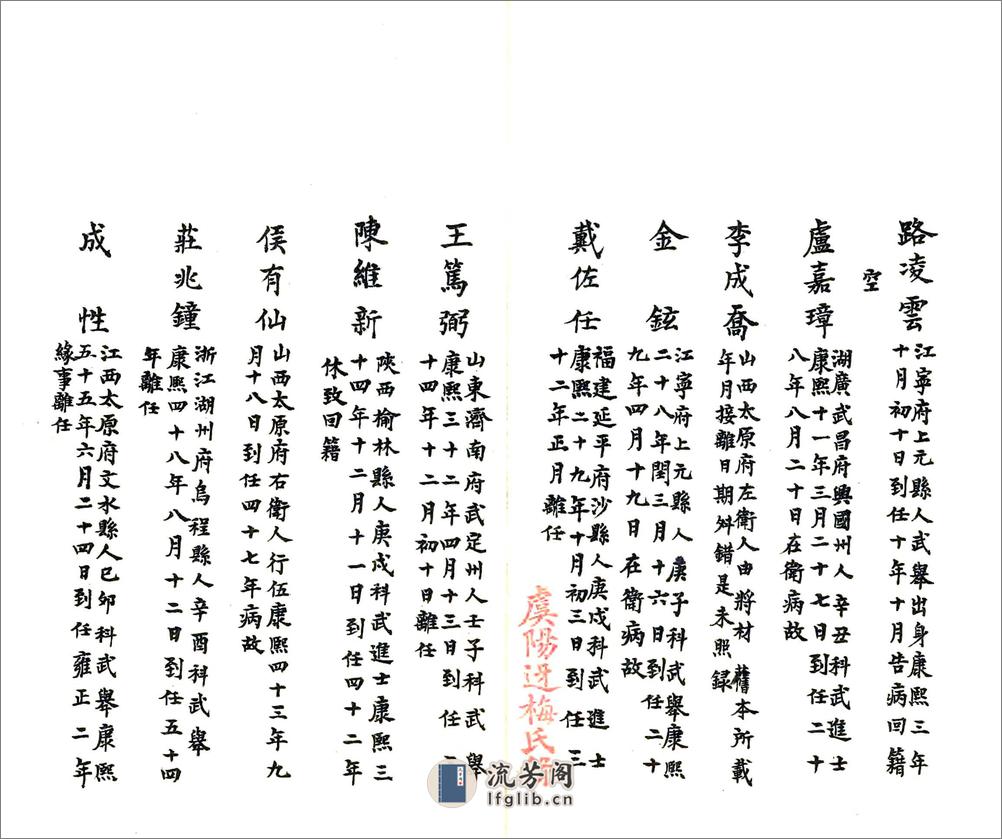 路凌雲
江寧府上元縣人武舉出身康熙三年
十月初十日到任十年十月告病回籍
空
盧嘉璋
湖廣武昌府興國州人辛丑科武進士
康熙十一年三月二十七日到任二十
八年八月二十日在衛病故
李成喬
山西太原府左衛人由將材舊本所載
年月接離日期舛錯是未照録
金鉉
江寧府上元縣人庚子科武舉康熙
二十八年閏三月十六日到任二十
九年四月十九日在衛病故
戴佐任
福建延平府沙縣人庚戌科武進士
康熙二十九年十月初三日到任三
十二年正月離任
虞陽逆梅氏
王篤弼
山東濟南府武定州人壬子科武舉
康熙三十二年四月十三日到任二
十四年十二月初十日離任
陳維新
陝西榆林縣人庚戌科武進士康熙三
十四年十二月十一日到任四十二年
休致回籍
侯有仙
山西太原府右衛人行伍康熙四十三年九
月十八日到任四十七年病故
莊兆鐘
浙江湖州府烏程縣人辛酉科武舉
康熙四十八年八月十二日到任五十四
年離任
成性
江西太原府文水縣人己卯科武舉康熙
五十五年六月二十四日到任雍正二年
緣事離任
流芳阁
lfglib.cn